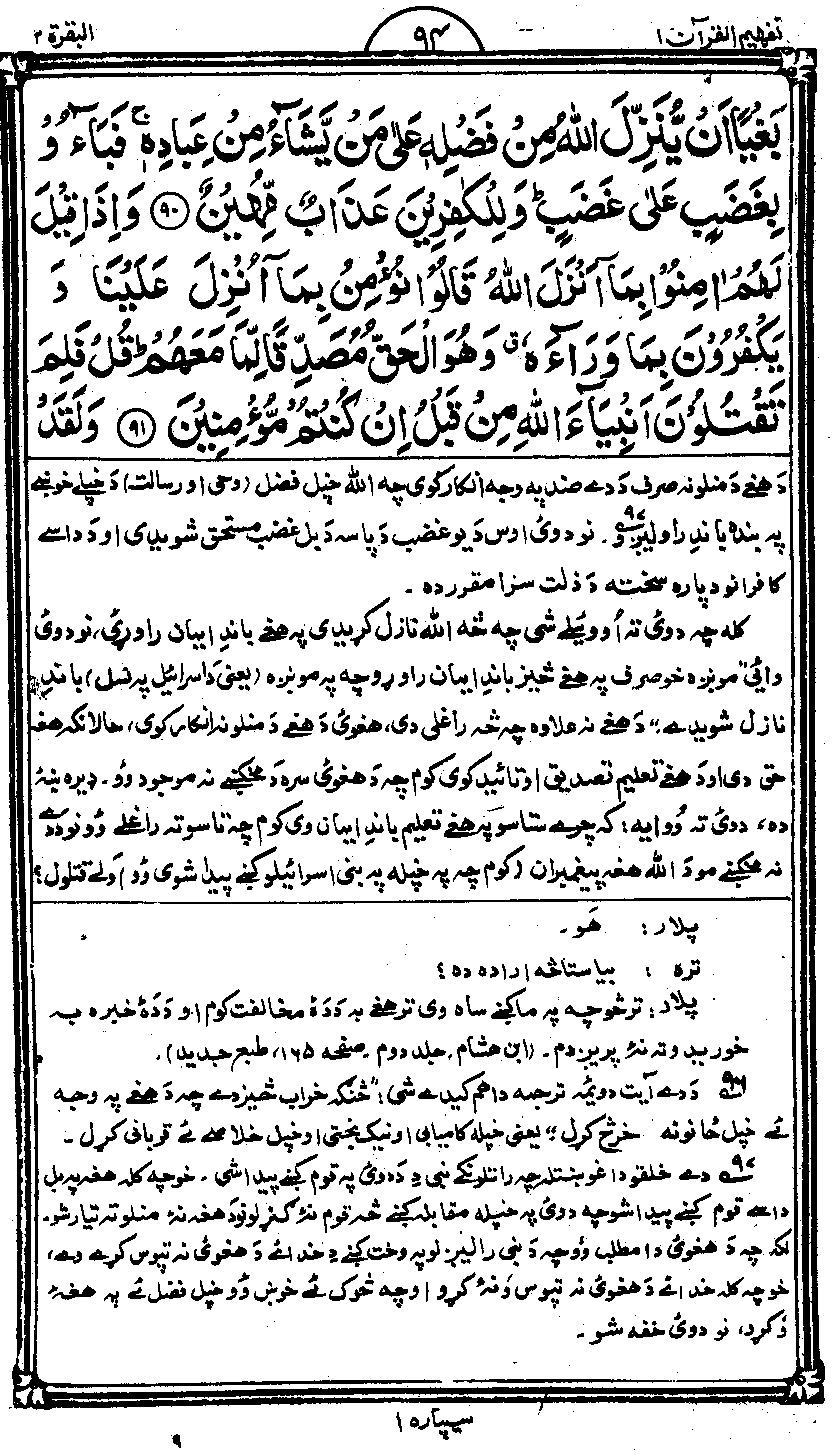 تفهيم القرآن ۱ ۹۴ البقرة ۲
بَغْيًا اَنْ يُّنَزِّلَ اللهُ مِنْ فَضْلِهٖ عَلٰى مَنْ يَّشَآءُ مِنْ عِبَادِهٖ ۚ فَبَآءُوْ
بِغَضَبٍ عَلٰى غَضَبٍ ؕ وَلِلْكٰفِرِيْنَ عَذَابٌ مُّهِيْنٌ ۹۰ وَاِذَا قِيْلَ
لَهُمْ اٰمِنُوْا بِمَآ اَنْزَلَ اللهُ قَالُوْا نُؤْمِنُ بِمَآ اُنْزِلَ عَلَيْنَا وَ
يَكْفُرُوْنَ بِمَا وَرَآءَهٗ ۗ وَهُوَ الْحَقُّ مُصَدِّقًا لِّمَا مَعَهُمْ ؕ قُلْ فَلِمَ
تَقْتُلُوْنَ اَنْۢبِيَآءَ اللهِ مِنْ قَبْلُ اِنْ كُنْتُمْ مُّؤْمِنِيْنَ ۹۱ وَلَقَدْ
دَ هغے دَ منلو نہ صرف دَ دے ضد په وجه انكار كوى چه الله خپل فضل (وحى او رسالت) دَ خپلے خوښے
په بنده باندِ راوليږو ۹۷. نو دوئ اوس دَ يو غضب دَ پاسه دَ بل غضب مستحق شويدى او دَ داسے
كافرانو دپاره سخته دَ ذلت سزا مقرر ده.
كله چه دوئ ته اووئيلے شى چه څه الله نازل كړيدى په هغے باندِ ايمان راوړئ، نو دوئ
وائى "مونږه خو صرف په هغه څيز باندِ ايمان راوړو چه په مونږه (يعنى دَ اسرائيل په نسل) باندِ
نازل شويدے" دَ هغے نه علاوه چه څه راغلى دى، هغوئ دَ هغے دَ منلو نه انكار كوى، حالانكه هغه
حق دى او دَ هغے تعليم تصديق او تائيد كوى كوم چه دَ هغوئ سره دَ مخكښے نه موجود وُو. ډيره ښه
ده، دوئ ته ووايه: كه چرے ستاسو په هغے تعليم باندِ ايمان وى كوم چه تاسو ته راغلے وُو نو دَ دے
نه مخكښے مو دَ الله هغه پيغمبران (كوم چه په خپله په بنى اسرائيلو كښے پيدا شوى وُو) ولے قتلول؟
پلار: هَو.
تره: بيا ستا څه اراده ده؟
پلار: تر څو چه په ما كښے ساه وى تر هغے به دَ دهٔ مخالفت كوم او دَ دهٔ خبره به
خوريدو ته نهٔ پريږدم. (ابن هشام. جلد دوم. صفحه ۱۶۵، طبع جديد).
۹۶ دَ دے آيت دويمه ترجمه دا هم كيدے شى: "څنګه خراب څيز دے چه دَ هغے په وجه
ئے خپل ځانونه خرڅ كړل" يعنى خپله كاميابى او نيك بختى او خپل خلاصے ئے قربانى كړل.
۹۷ دے خلقو دا غوښتل چه راتلونكے نبى دِ دَ دوئ په قوم كښے پيدا شى. خو چه كله هغه په بل
داسے قوم كښے پيدا شو چه دوئ په خپله مقابله كښے څه قوم نهٔ ګنړلو نو دَ هغه نهٔ منلو ته تيار شو.
لكه چه دَ هغوئ دا مطلب وُو چه دَ نبى راليږلو په وخت كښے دِ خدائے دَ هغوئ نه تپوس كړے وے،
خو چه كله خدائے دَ هغوئ نه تپوس وُ نهٔ كړو او چه څوك ئے خوښ وُو خپل فضل ئے په هغهٔ
وُ كړو، نو دوئ خفه شو.
سيپاره ۱
۹